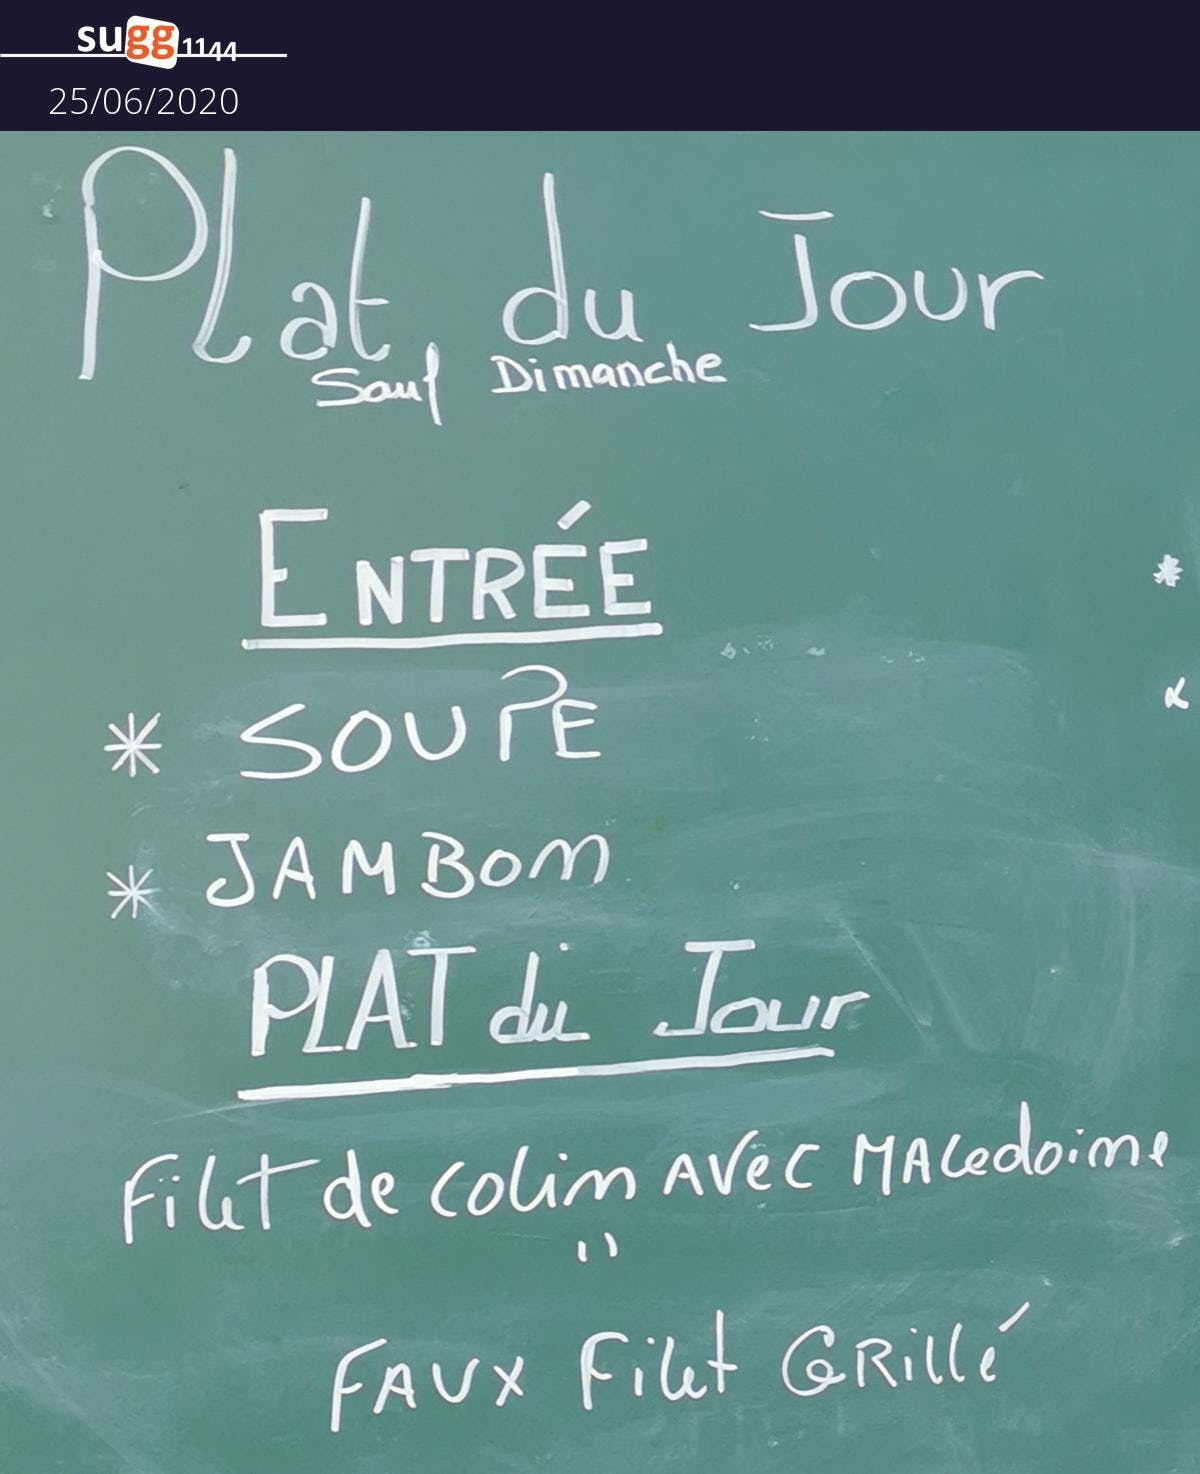 sugg1144
25/06/2020
Plat du Jour
Sauf Dimanche
ENTRÉE
* SOUPE
* JAMBON
PLAT du Jour
Filet de colin AVEC MAcedoine
"
FAUX Filet GRillé